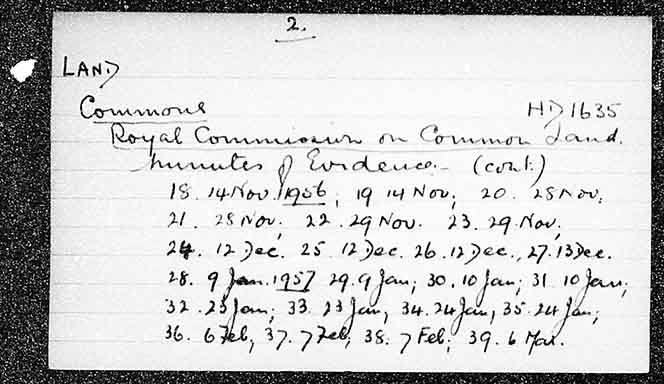 2.
LAND
Commons HD 1635
Royal Commission on Common Land.
Minutes of Evidence - (cont.)
18. 14 Nov. 1956; 19 14 Nov; 20. 28 Nov;
21. 28 Nov; 22. 29 Nov. 23. 29 Nov;
24. 12 Dec. 25. 12 Dec. 26. 12 Dec., 27. 13 Dec.
28. 9 Jan. 1957 29. 9 Jan; 30. 10 Jan; 31 10 Jan;
32. 23 Jan; 33. 23 Jan, 34. 24 Jan, 35. 24 Jan;
36. 6 Feb, 37. 7 Feb; 38. 7 Feb; 39. 6 Mar.